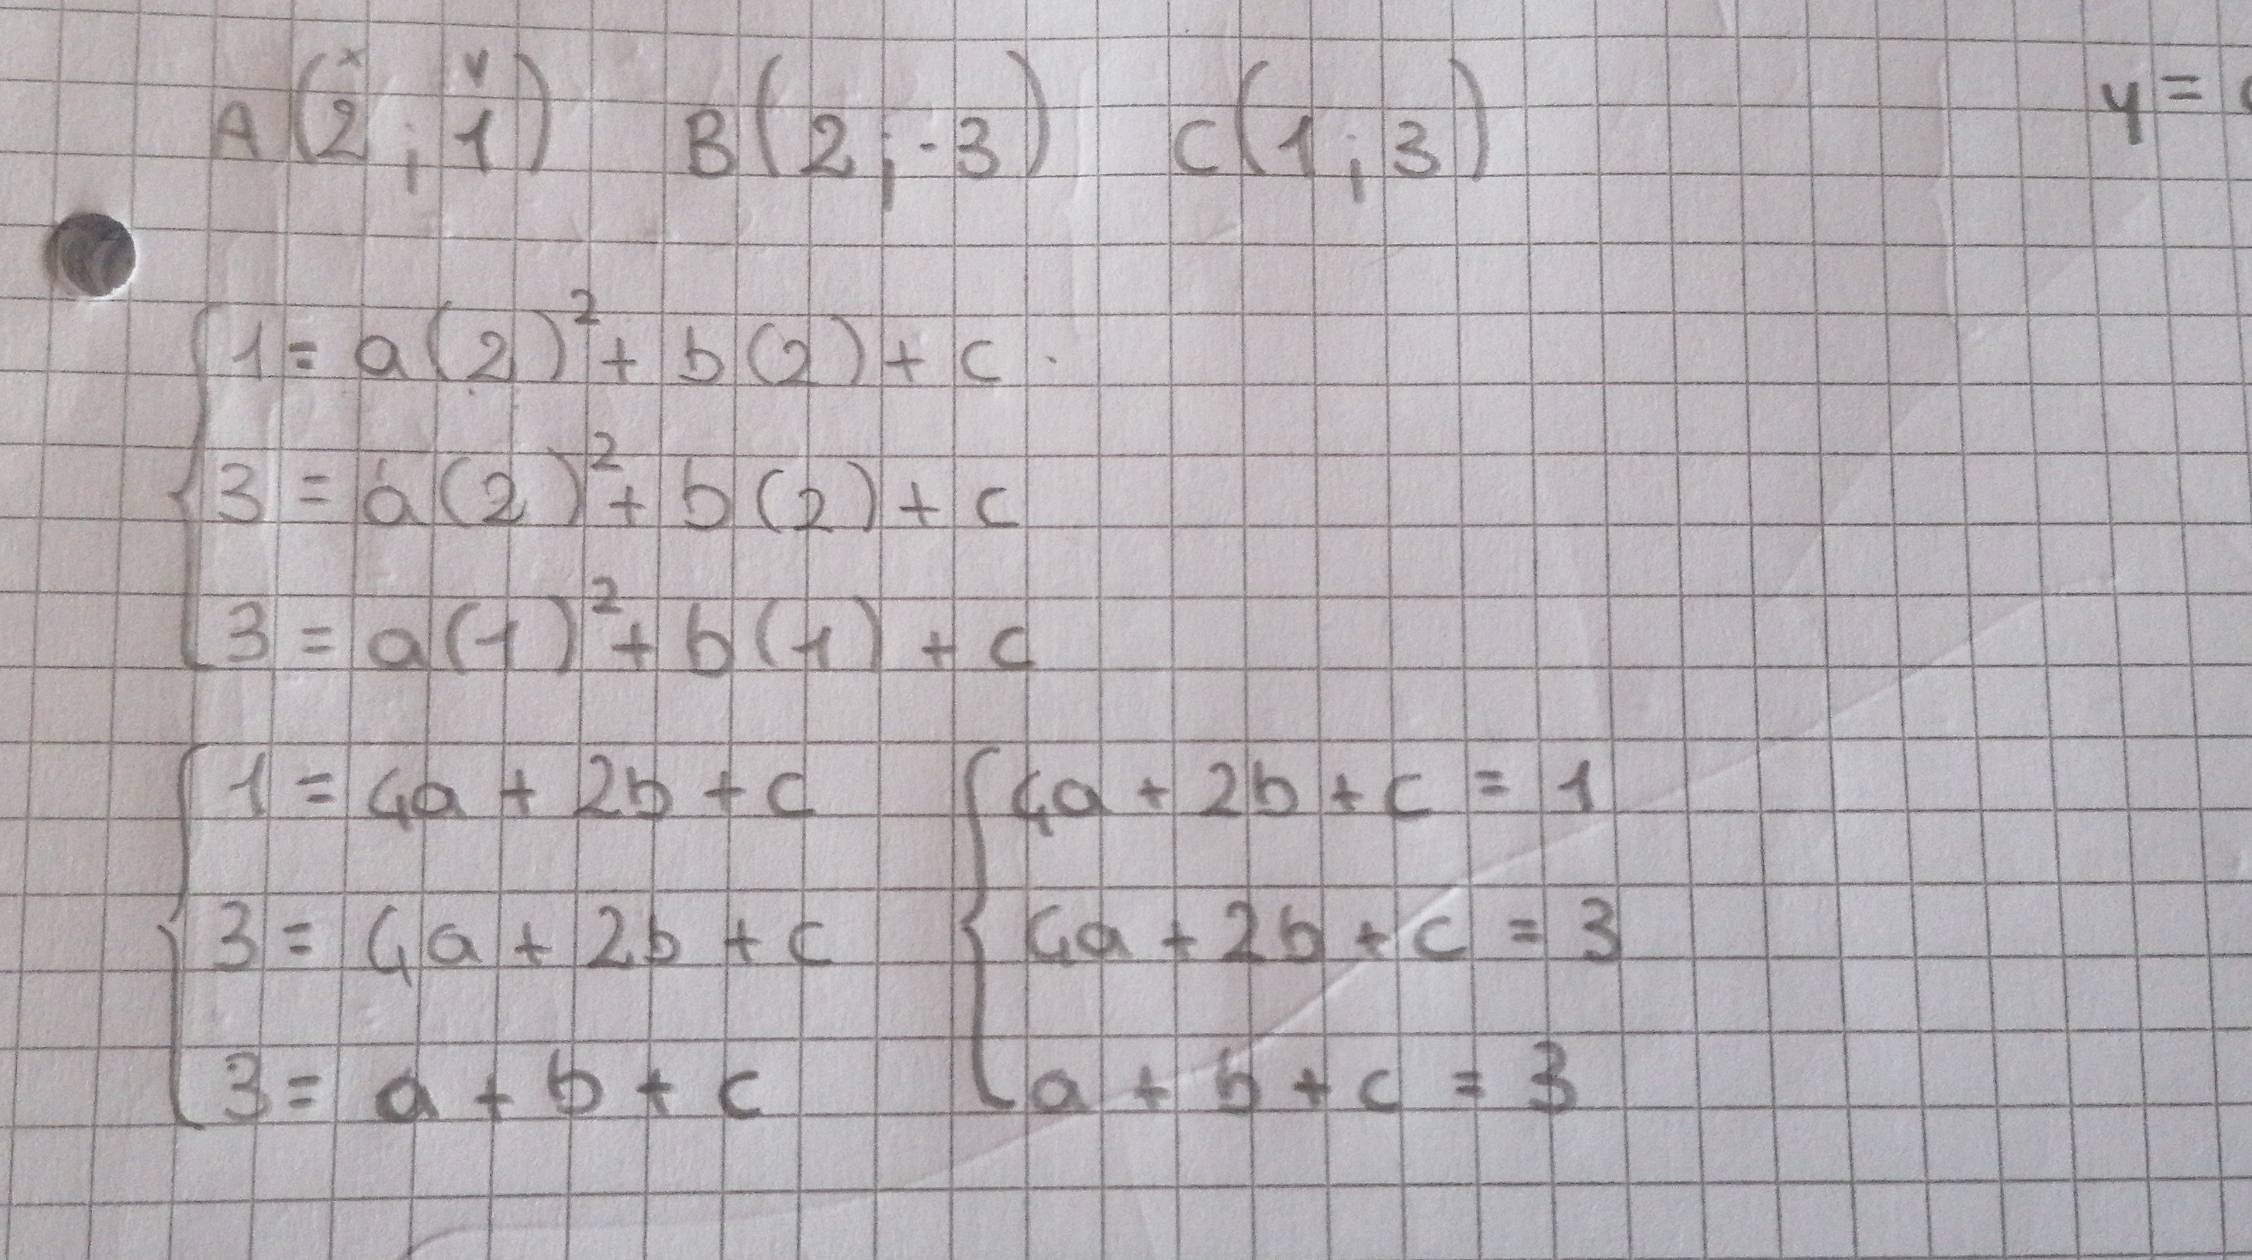 A(2;1) B(2;-3) C(1;3) y=
x y
1 = a(2)² + b(2) + c
3 = a(2)² + b(2) + c
3 = a(1)² + b(1) + c
1 = 4a + 2b + c 4a + 2b + c = 1
3 = 4a + 2b + c 4a + 2b + c = 3
3 = a + b + c a + b + c = 3